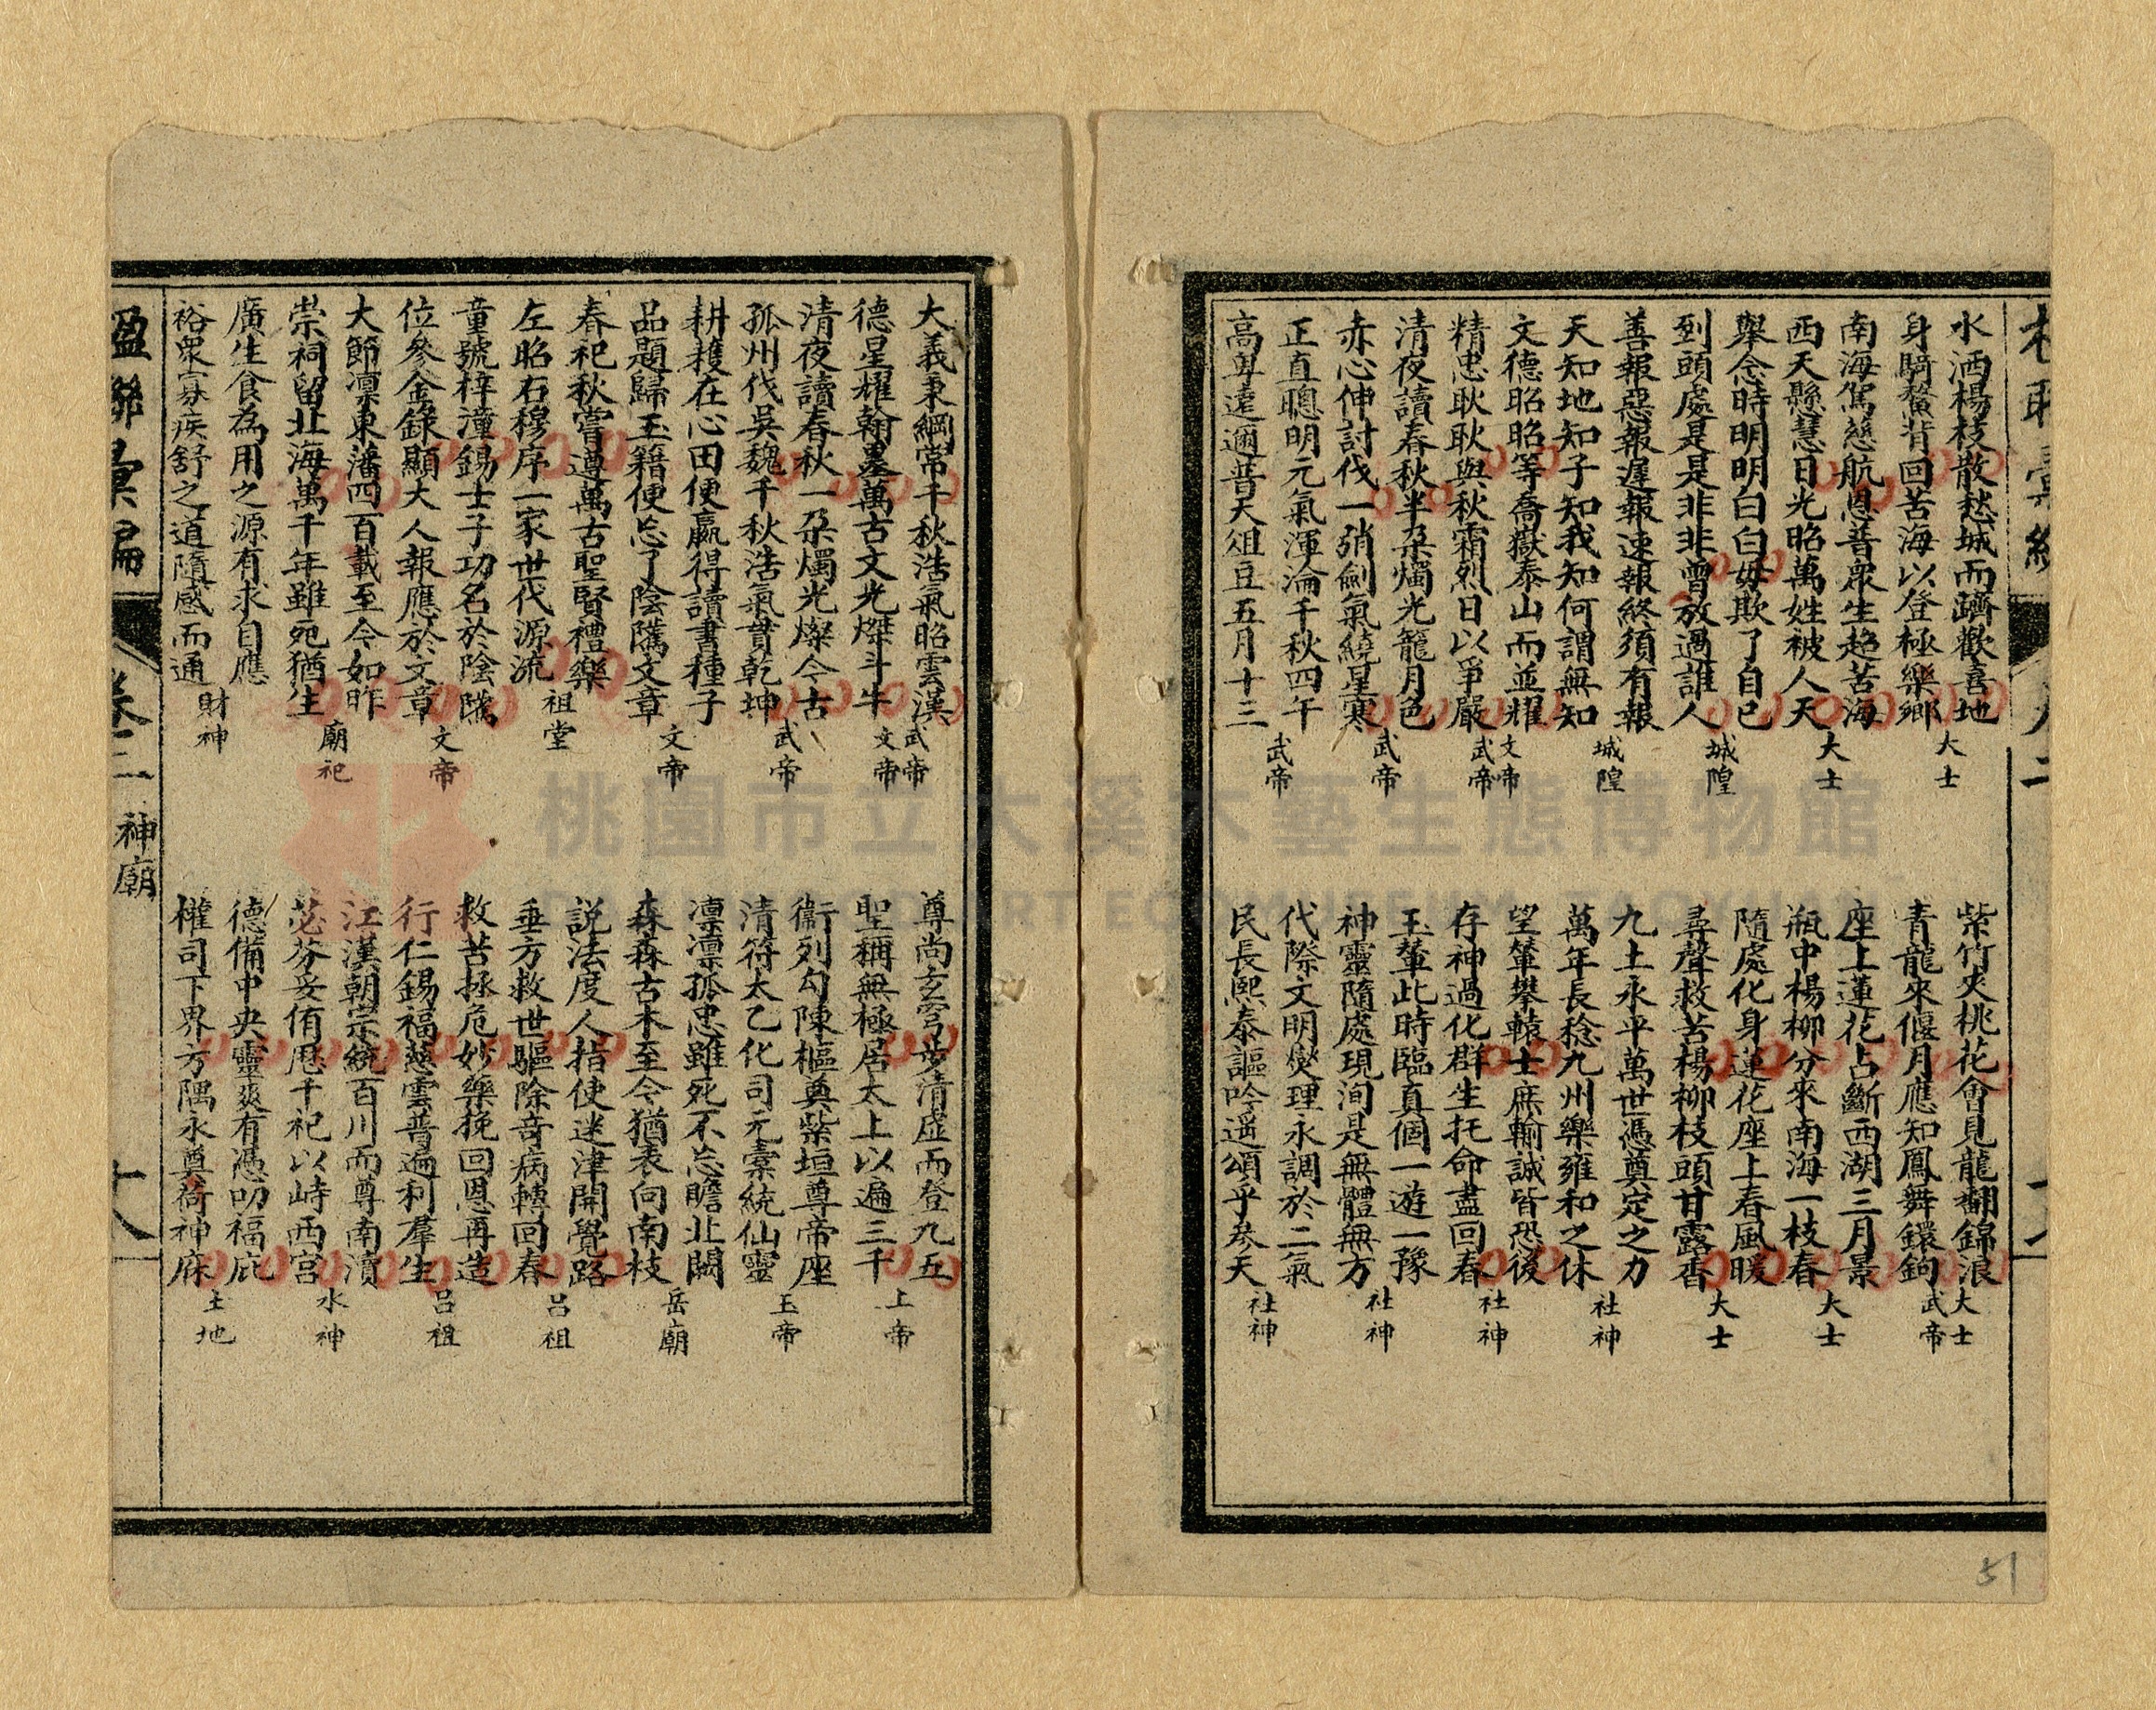 水洒楊枝散愁城而躋歡喜地
身騎鰲背回苦海以登極樂鄉
大士
南海駕慈航恩普眾生超苦海
西天縣慧日光昭萬姓被人天
大士
舉念時明明白白毋欺了自己
到頭處是是非非曾放過誰人
城隍
善報惡報遲報速報終須有報
天知地知子知我知何謂無知
城隍
文德昭昭等喬嶽泰山而並耀
精忠耿耿與秋霜烈日以爭嚴
文帝
武帝
清夜讀春秋半朵燭光籠月色
赤心伸討伐一弰劍氣繞星寒
武帝
正直聰明元氣渾淪千秋四午
高卑遠邇普天俎豆五月十三
武帝
紫竹夾桃花會見龍翻錦浪
青龍來偃月應知鳳舞鐶鉤
大士
武帝
座上蓮花占斷西湖三月景
瓶中楊柳分來南海一枝春
大士
隨處化身蓮花座上春風暖
尋聲救苦楊柳枝頭甘露香
大士
九土永平萬世憑奠定之力
萬年長稔九州樂雍和之休
社神
望輦攀轅士庶輸誠皆恐後
存神過化群生托命盡回春
社神
玉輦此時臨真個一遊一豫
神靈隨處現洵是無體無方
社神
代際文明燮理永調於二氣
民長熙泰謳吟遥頌乎參天
社神
51
大義秉綱常千秋浩氣昭雲漢
德星耀翰墨萬古文光燦斗牛
武帝
文帝
清夜讀春秋一朵燭光燦今古
孤州伐吳魏千秋浩氣貫乾坤
武帝
耕耨在心田便贏得讀書種子
品題歸玉籍便忘了陰隲文章
文帝
春祀秋嘗遵萬古聖賢禮樂
左昭右穆序一家世代源流
祖堂
童號梓潼錫士子功名於陰隲
位參金錄顯大人報應於文章
文帝
大節凛東藩四百載至今如昨
崇祠留北海萬千年雖死猶生
廟祀
廣生食為用之源有求自應
裕眾寡疾舒之道隨感而通
財神
尊尚玄穹步清虛而登九五
聖稱無極居太上以遍三千
上帝
衞列勾陳樞奠紫垣尊帝座
清符太乙化司元橐統仙靈
玉帝
凛凛孤忠雖死不忘瞻北闕
森森古木至今猶表向南枝
岳廟
説法度人指使迷津開覺路
垂方救世驅除竒病轉回春
呂祖
救苦拯危妙藥挽回恩再造
行仁錫福慈雲普遍利羣生
呂祖
江漢朝宗統百川而尊南瀆
苾芬妥侑歷千祀以峙西宮
水神
德備中央靈爽有憑叨福庇
權司下界方隅永奠荷神庥
土地
楹聯彙編 卷二 神廟 十八
桃園市立大溪木藝生態博物館